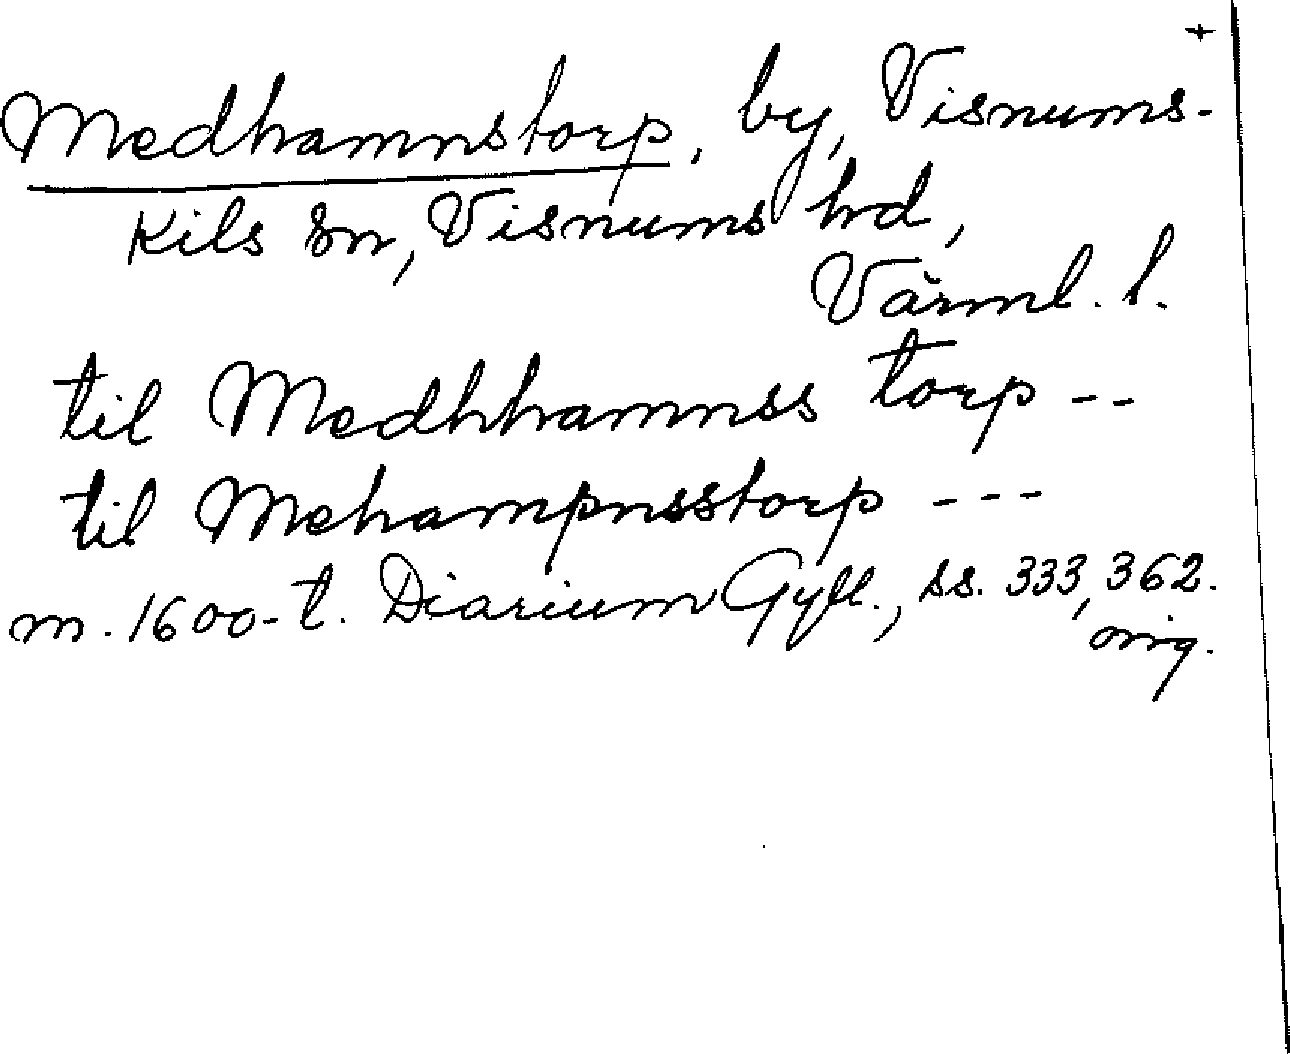 +
Medhamnstorp, by, Visnums-
Kils sn, Visnums hd,
Värml. l.
til Medhhamnss torp --
til Mehampnsstorp ---
m. 1600-t. Diarium Gyll., ss. 333, 362.
orig.